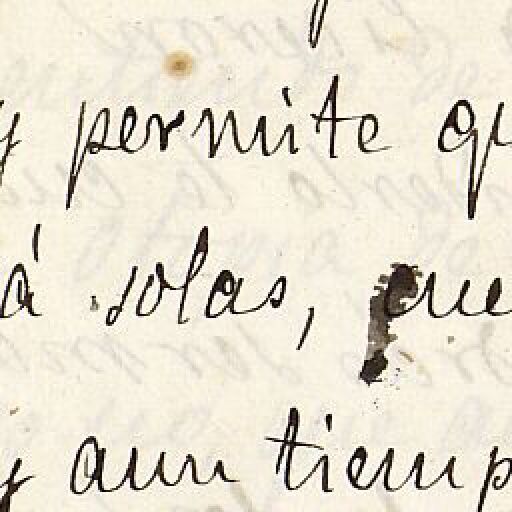 y permite qu
á solas, que
y aun tiemp